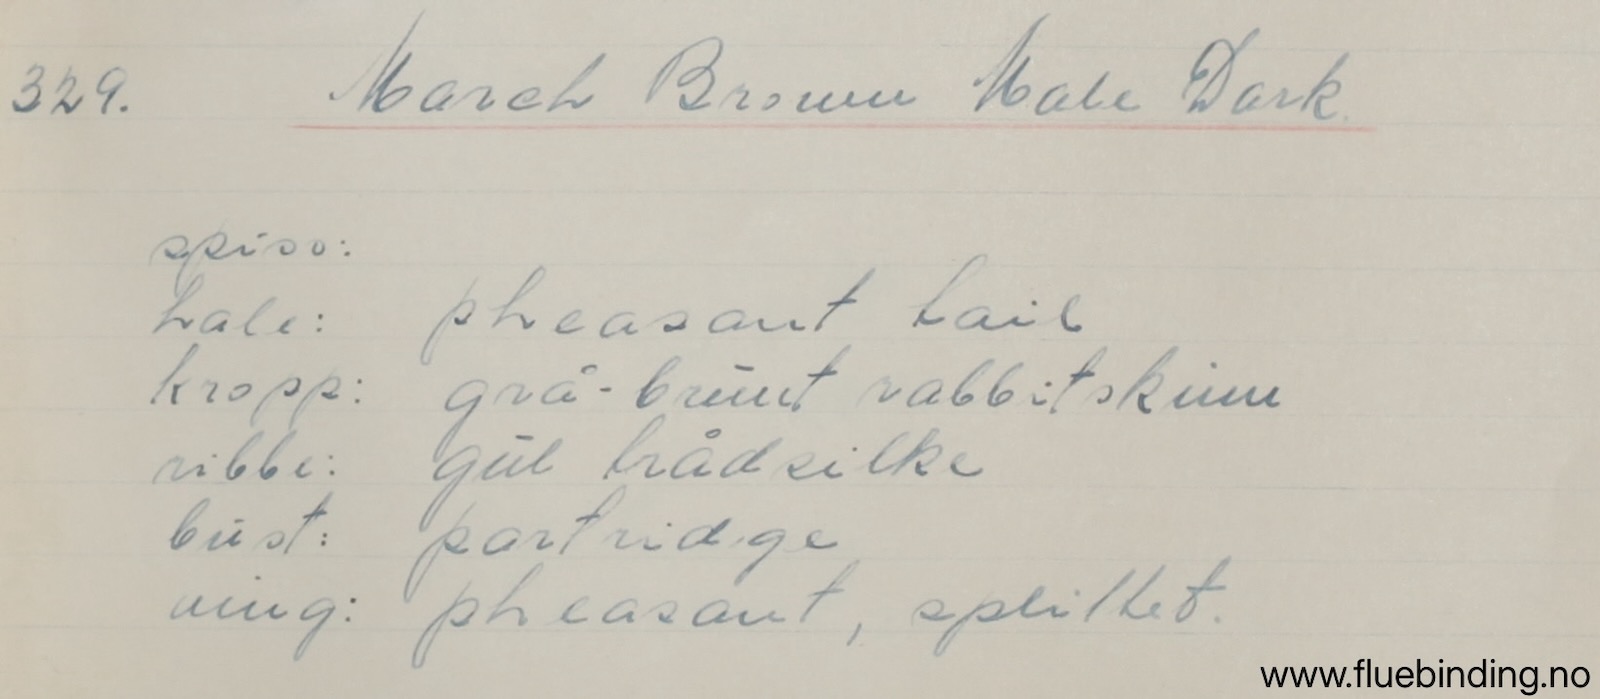 329. March Brown Male Dark.
spiss:
hale: pheasant tail
kropp: grå-brunt rabbitskinn
ribbe: gul trådsilke
bust: partridge
ving: pheasant, splittet.
www.fluebinding.no